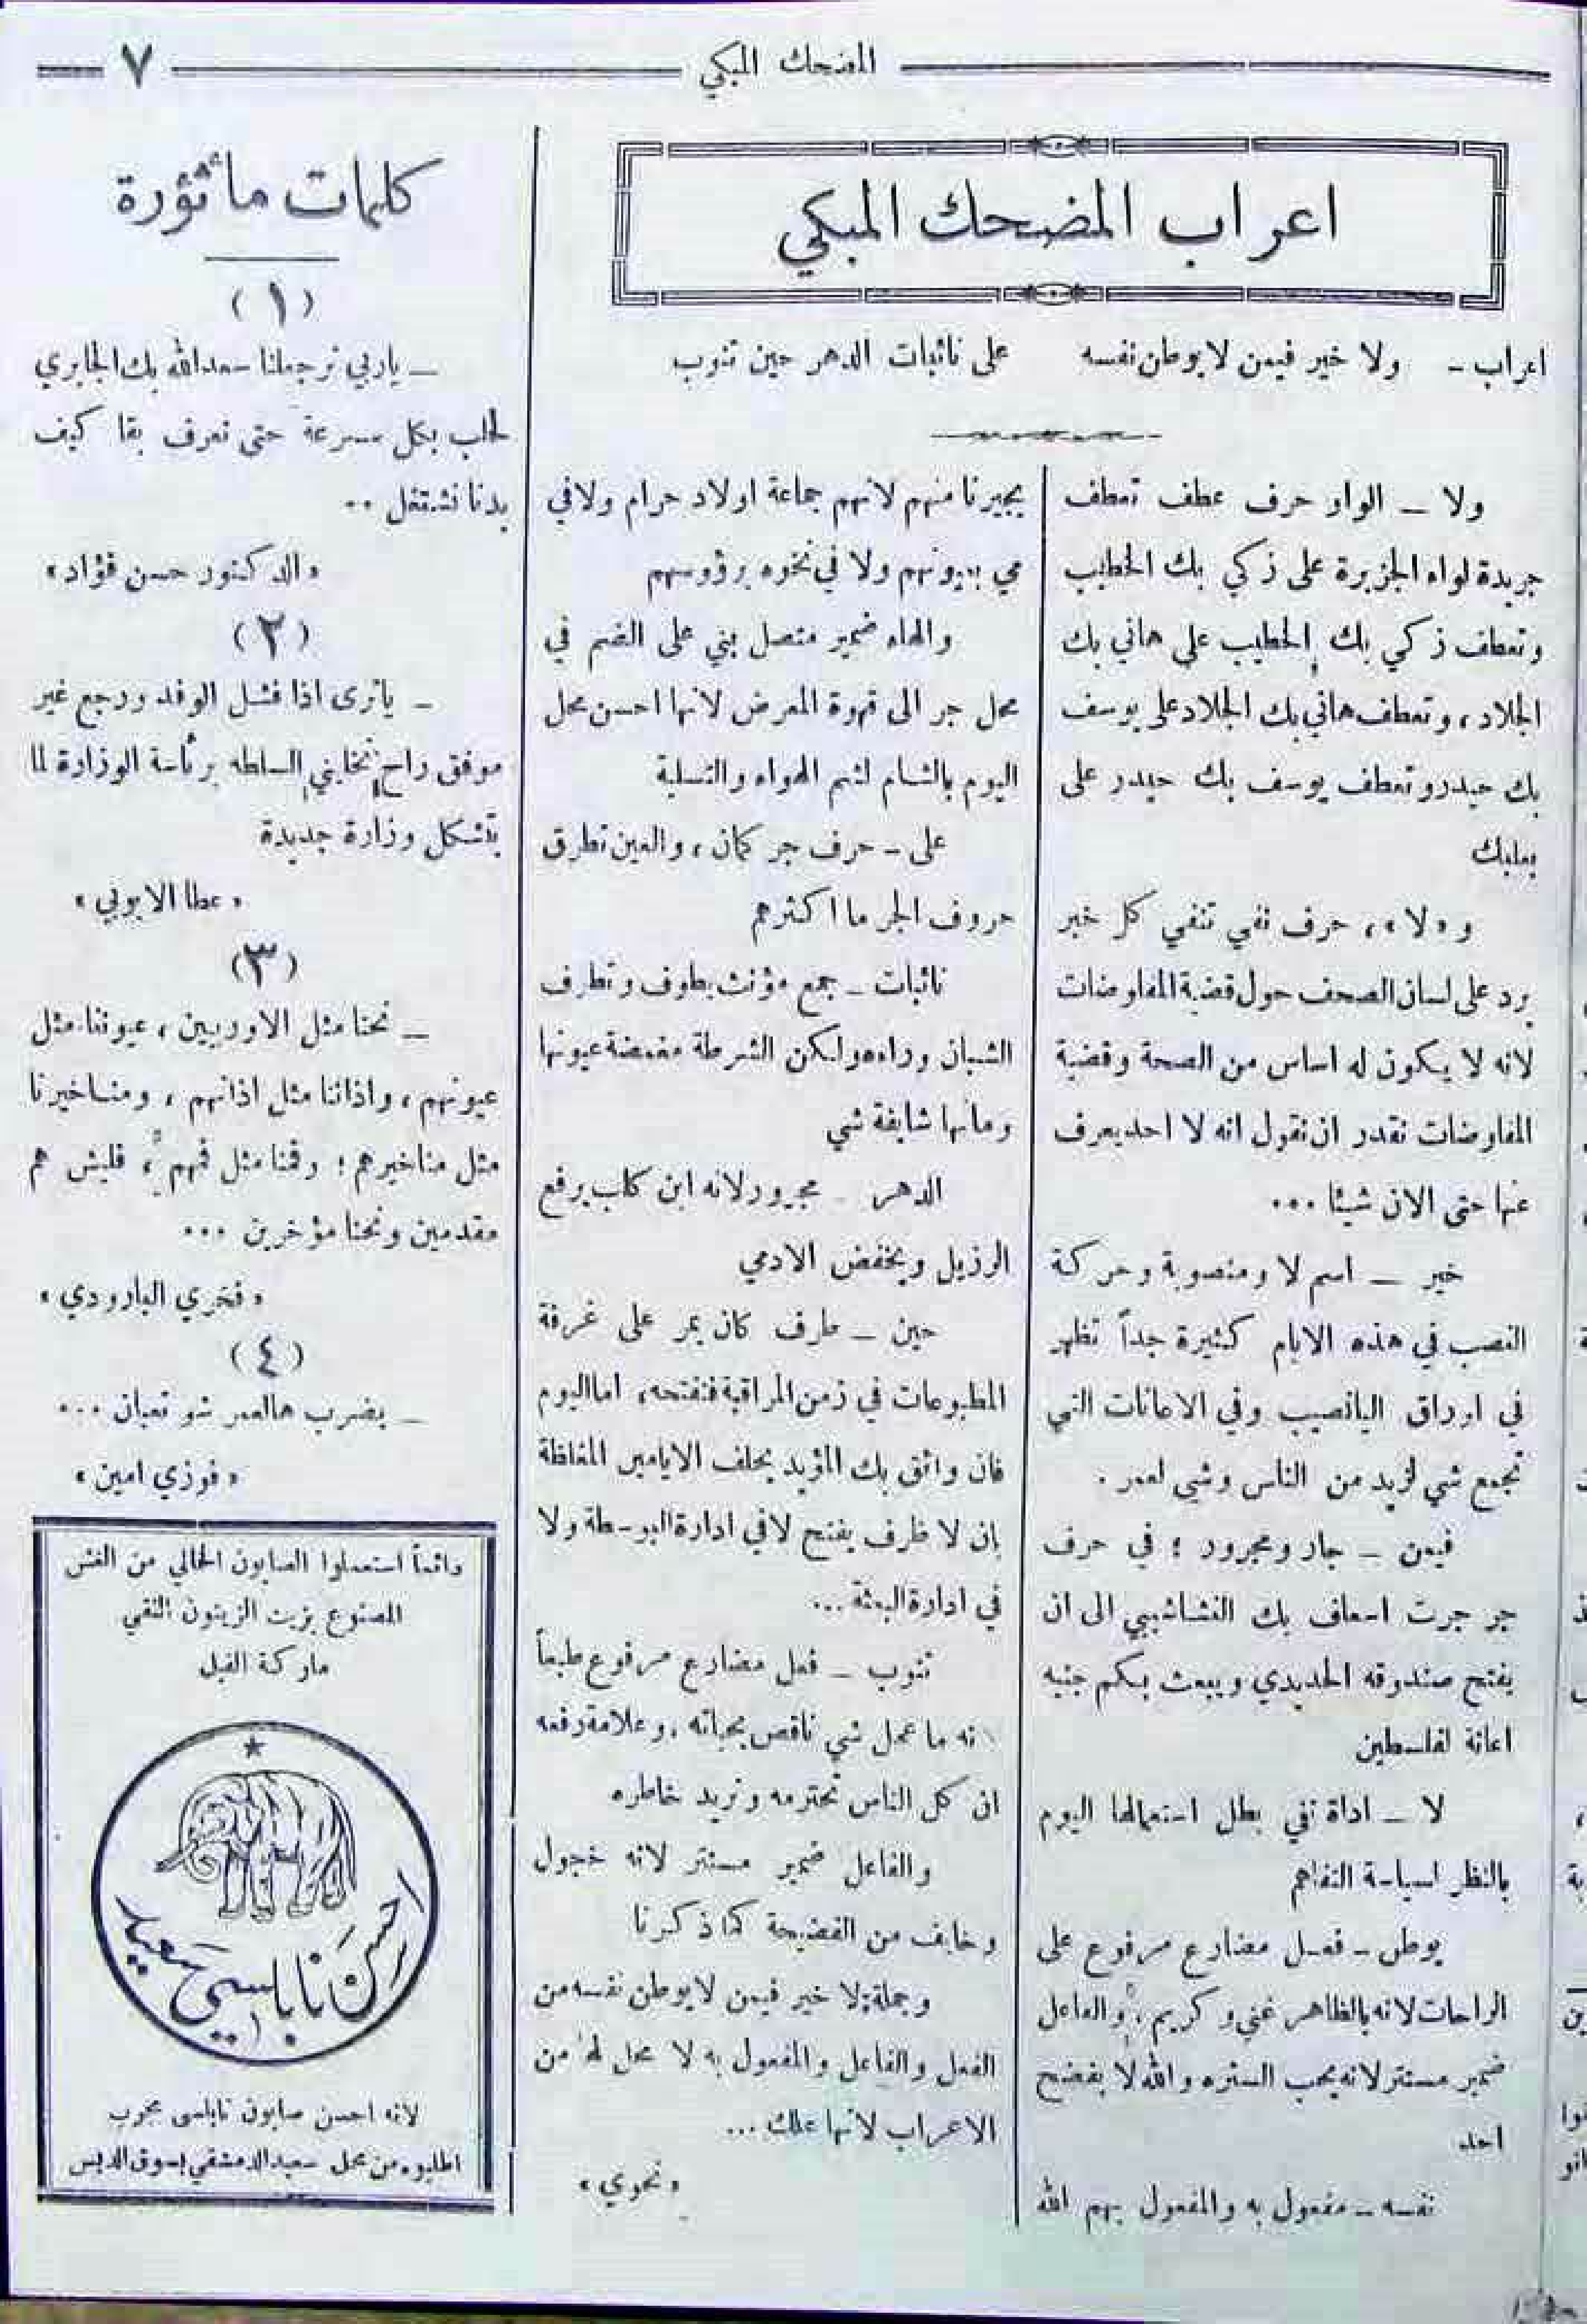 المضحك المبكي
٧
اعراب المضحك المبكي
اعراب - ولا خير فيمن لا يوطن نفسه على نائبات الدهر حين تنوب
ولا – الواو حرف عطف تعطف
جريدة لواء الجزيرة على زكي بك الخطيب
وتعطف زكي بك الخطيب على هاني بك
الجلاد، وتعطف هاني بك الجلاد على يوسف
بك حيدر وتعطف يوسف بك حيدر على
بعلبك
و«لا»، حرف نفي تنفي كل خبر
يرد على لسان الصحف حول قضية المفاوضات
لانه لا يكون له اساس من الصحة وقضية
المفاوضات نقدر ان نقول انه لا احد يعرف
عنها حتى الان شيئا ...
خير – اسم لا ومنصوبة وحركة
النصب في هذه الايام كثيرة جداً تظهر
في اوراق اليانصيب وفي الاعانات التي
تجمع شي لزيد من الناس وشي لعمر .
فيمن – جار ومجرور ؛ في حرف
جر جرت اسعاف بك النشاشيبي الى ان
يفتح صندوقه الحديدي ويبعث بكم جنيه
اعانة لفلسطين
لا – اداة نفي بطل استعمالها اليوم
بالنظر لسياسة التفاهم
يوطن – فعل مضارع مرفوع على
الراحات لانه بالظاهر غني وكريم، والفاعل
ضمير مستتر لانه يحب الستره والله لا يفضح
احد
نفسه – مفعول به والمفعول بهم الله
يجيرنا منهم لانهم جماعة اولاد حرام ولا في
مي بعيونهم ولا في نخوه برؤوسهم
والهاء ضمير متصل بني على الضم في
محل جر الى قهوة المعرض لانها احسن محل
اليوم بالشام لشم الهواء والتسلية
على - حرف جر كمان، والعين تطرق
حروف الجر ما اكثرهم
نائبات – جمع مؤنث يطوف وتطرف
الشبان وراءه ولكن الشرطة مغمضة عيونها
ومانها شايفة شي
الدهر – مجرور لانه ابن كلب يرفع
الرزيل ويخفض الادمي
حين – ظرف كان يمر على غرفة
المطبوعات في زمن المراقبة فنفتحه، اما اليوم
فان واثق بك المؤيد يحلف الايامين المغلظة
بان لا ظرف يفتح لا في ادارة البوسطة ولا
في ادارة البعثة ...
تنوب – فعل مضارع مرفوع طبعاً
لانه ما عمل شي ناقص بحياته، وعلامة رفعه
ان كل الناس تحترمه وتريد خاطره
والفاعل ضمير مستتر لانه خجول
وخايف من الفضيحة كما ذكرنا
وجملة: لا خير فيمن لا يوطن نفسه من
الفعل والفاعل والمفعول به لا محل لها من
الاعراب لانها علك ...
«نحوي»
كلمات مأثورة
(١)
– ياربي ترجعلنا سعدالله بك الجابري
لحلب بكل سرعة حتى نعرف بقا كيف
بدنا نشتغل ..
«الدكتور حسن فؤاد»
(٢)
– ياترى اذا فشل الوفد ورجع غير
موفق راح تخليني السلطه برئاسة الوزارة لما
بتشكل وزارة جديدة
«عطا الايوبي»
(٣)
– نحنا مثل الاوربيين، عيوننا مثل
عيونهم، واذاننا مثل اذانهم، ومناخيرنا
مثل مناخيرهم؛ وتمنا مثل تمهم، فليش هم
مقدمين ونحنا مؤخرين ...
«فخري البارودي»
(٤)
– يضرب هالعمر شو تعبان ...
«فوزي امين»
دائماً استعملوا الصابون الخالي من الغش
المصنوع بزيت الزيتون النقي
ماركة الفيل
احسن نابلسي سعيد
لانه احسن صابون نابلسي مجرب
اطلبوه من محل سعيد الدمشقي بسوق الدبس